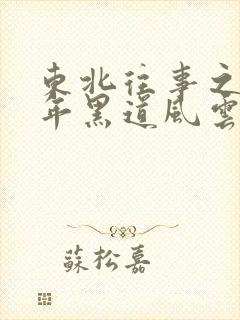 東北往事之
年黑道風雲
蘇松嘉